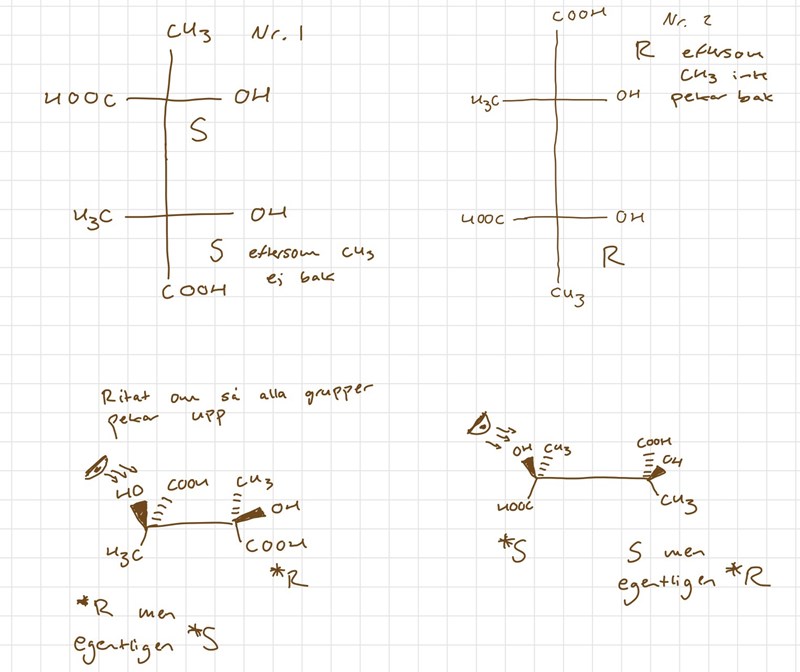 CH3 Nr. 1
HOOC OH
S
H3C OH
S eftersom CH3
ej bak
COOH
COOH Nr. 2
R eftersom
CH3 inte
pekar bak
H3C OH
HOOC OH
R
CH3
Ritat om så alla grupper
pekar upp
HO COOH CH3
OH
H3C COOH
*R
*R men
egentligen *S
OH CH3 COOH
OH
HOOC CH3
*S S men
egentligen *R